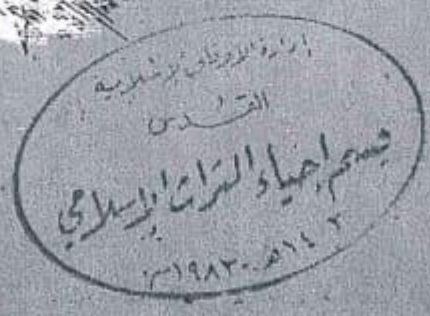 إدارة الأوقاف الإسلامية
القدس
قسم إحياء التراث الإسلامي
١٤٠٣هـ - ١٩٨٣م